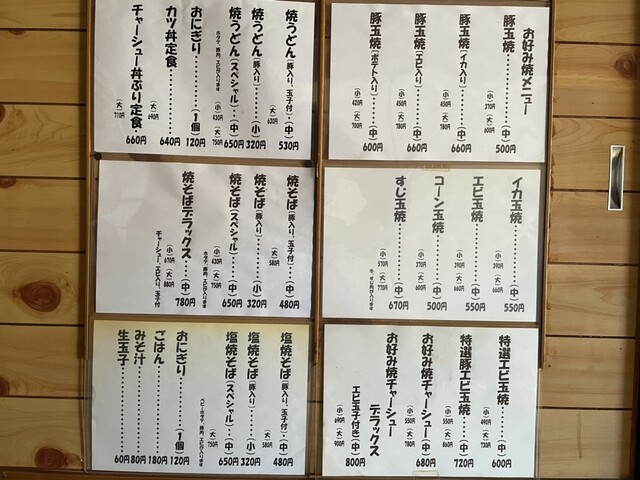 お好み焼メニュー
豚玉焼‥‥‥‥(中)500円
(小)370円 (大)600円
豚玉焼(イカ入り)‥‥(中)660円
(小)450円 (大)780円
豚玉焼(エビ入り)‥‥(中)660円
(小)450円 (大)780円
豚玉焼(ポテト入り)‥‥(中)600円
(小)420円 (大)700円
イカ玉焼‥‥‥‥(中)550円
(小)390円 (大)660円
エビ玉焼‥‥‥‥(中)550円
(小)390円 (大)660円
コーン玉焼‥‥‥‥(中)500円
(小)370円 (大)600円
すじ玉焼‥‥‥‥(中)670円
(小)570円 (大)770円
特選エビ玉焼‥‥(中)600円
(小)490円 (大)730円
特選豚エビ玉焼‥‥(中)720円
(小)550円 (大)860円
お好み焼チャーシュー(中)680円
(小)550円 (大)780円
お好み焼チャーシュー
デラックス
エビ玉子付き(中)800円
(小)690円 (大)900円
焼うどん(豚入り、玉子付)(中)530円
(大)630円
焼うどん(豚入り)‥‥(小)320円
焼うどん(スペシャル)‥(中)650円
(小)430円 (大)750円
ホタテ、豚肉、エビが入ります
おにぎり‥‥‥(1個)120円
カツ丼定食‥‥‥‥640円
(大)690円
チャーシュー丼ぶり定食‥660円
(大)710円
焼そば(豚入り、玉子付)‥(中)480円
(大)580円
焼そば(豚入り)‥‥(小)320円
焼そば(スペシャル)‥(中)650円
(小)430円 (大)750円
ホタテ、豚肉、エビが入ります
焼そばデラックス‥‥(中)780円
(小)670円 (大)880円
チャーシュー、エビ入り、玉子付
塩焼そば(豚入り、玉子付)‥(中)480円
(大)580円
塩焼そば(豚入り)‥‥(小)320円
塩焼そば(スペシャル)‥(中)650円
(大)750円
おにぎり‥‥‥(1個)120円
ごはん‥‥‥‥180円
みそ汁‥‥‥‥80円
生玉子‥‥‥‥60円